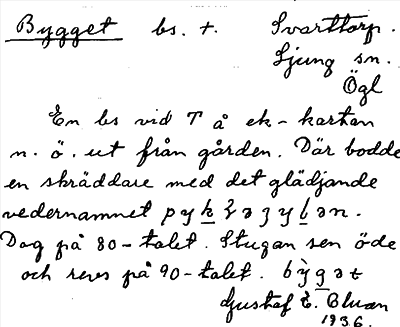 Bygget bs. t. Svarttorp.
Ljung sn.
Ögl
En bs vid T å ek-kartan
n. ö. ut från gården. Där bodde
en skräddare med det glädjande
vedernamnet
Dog på 80-talet. Stugan sen öde
och revs på 90-talet. bỳgət
Gustaf E. Bluan
1936.